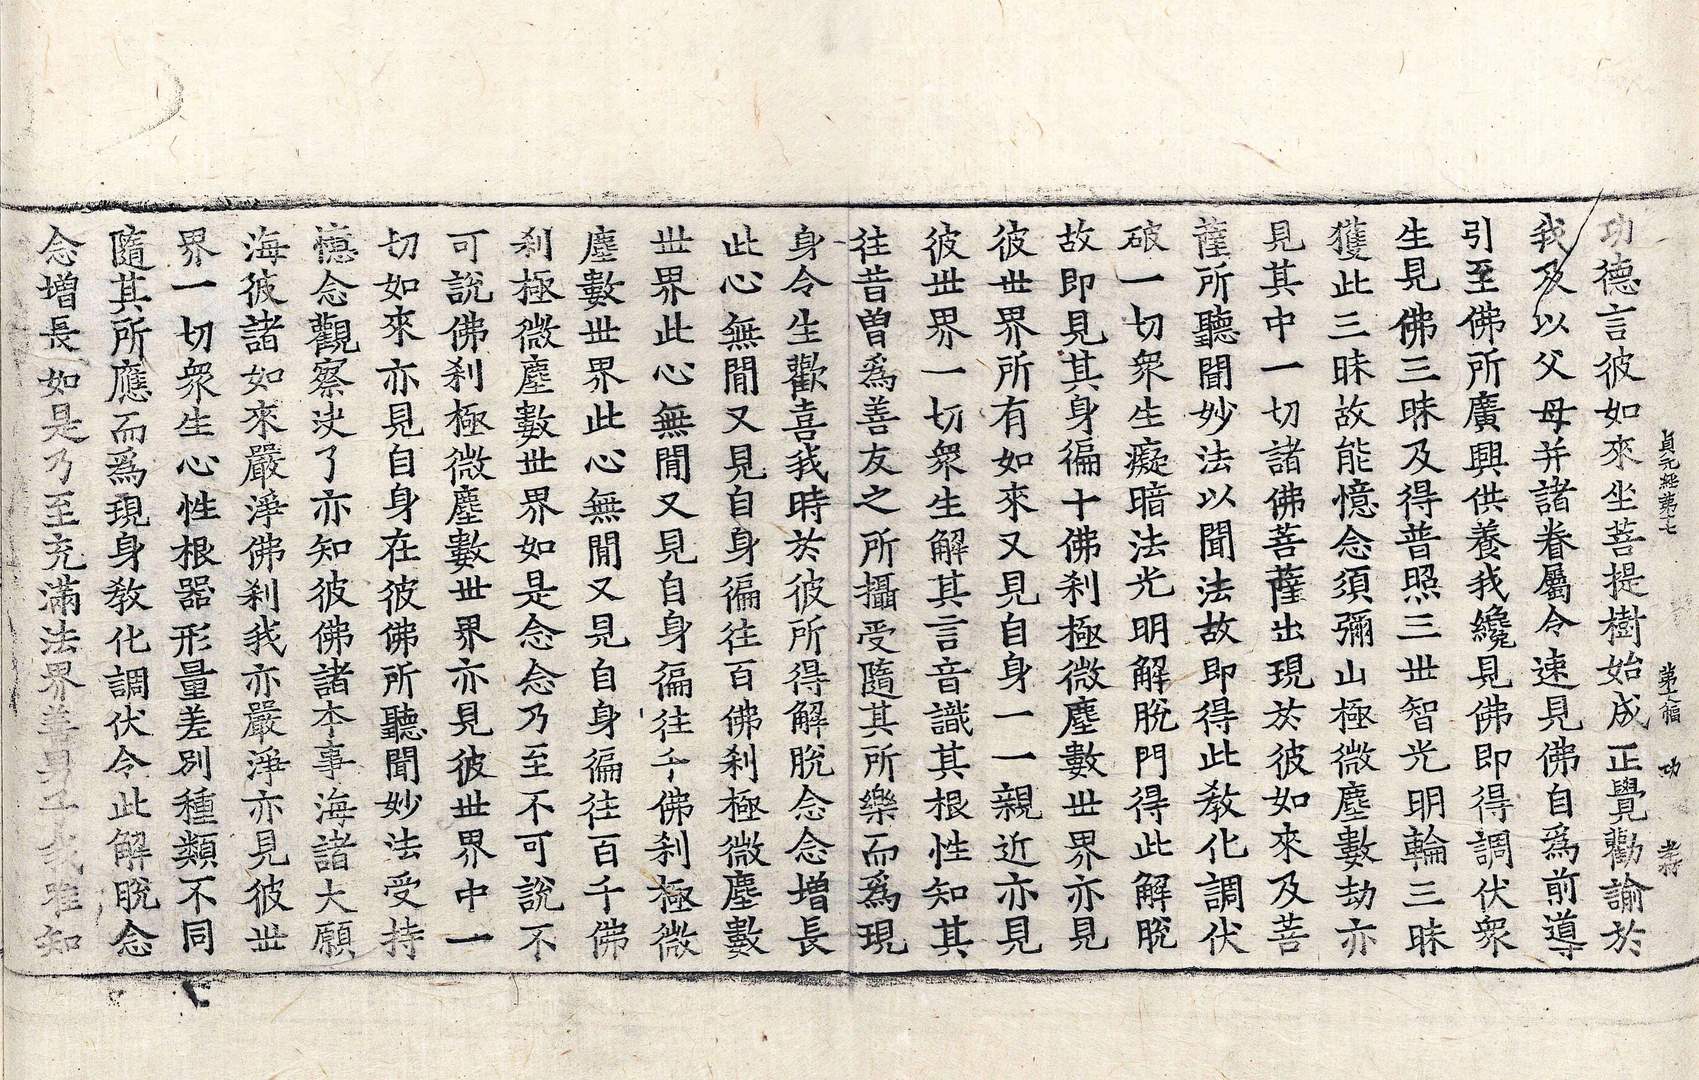 貞元經第十七 第十六幅 功
功德言彼如來坐菩提樹始成正覺勸諭於
我及以父母并諸眷屬令速見佛自爲前導
引至佛所廣興供養我纔見佛即得調伏衆
生見佛三昧及得普照三世智光明輪三昧
獲此三昧故能憶念須彌山極微塵數劫亦
見其中一切諸佛菩薩出現於彼如來及菩
薩所聽聞妙法以聞法故即得此教化調伏
破一切衆生癡暗法光明解脫門得此解脫
故即見其身徧十佛刹極微塵數世界亦見
彼世界所有如來又見自身一一親近亦見
彼世界一切衆生解其言音識其根性知其
往昔曽爲善友之所攝受隨其所樂而爲現
身令生歡喜我時於彼所得解脫念念增長
此心無閒又見自身徧往百佛刹極微塵數
世界此心無閒又見自身徧往千佛刹極微
塵數世界此心無閒又見自身徧往百千佛
刹極微塵數世界如是念念乃至不可說不
可說佛刹極微塵數世界亦見彼世界中一
切如來亦見自身在彼佛所聽聞妙法受持
憶念觀察決了亦知彼佛諸本事海諸大願
海彼諸如來嚴淨佛刹我亦嚴淨亦見彼世
界一切衆生心性根器形量差別種類不同
隨其所應而爲現身教化調伏令此解脫念
念增長如是乃至充滿法界善男子我唯知